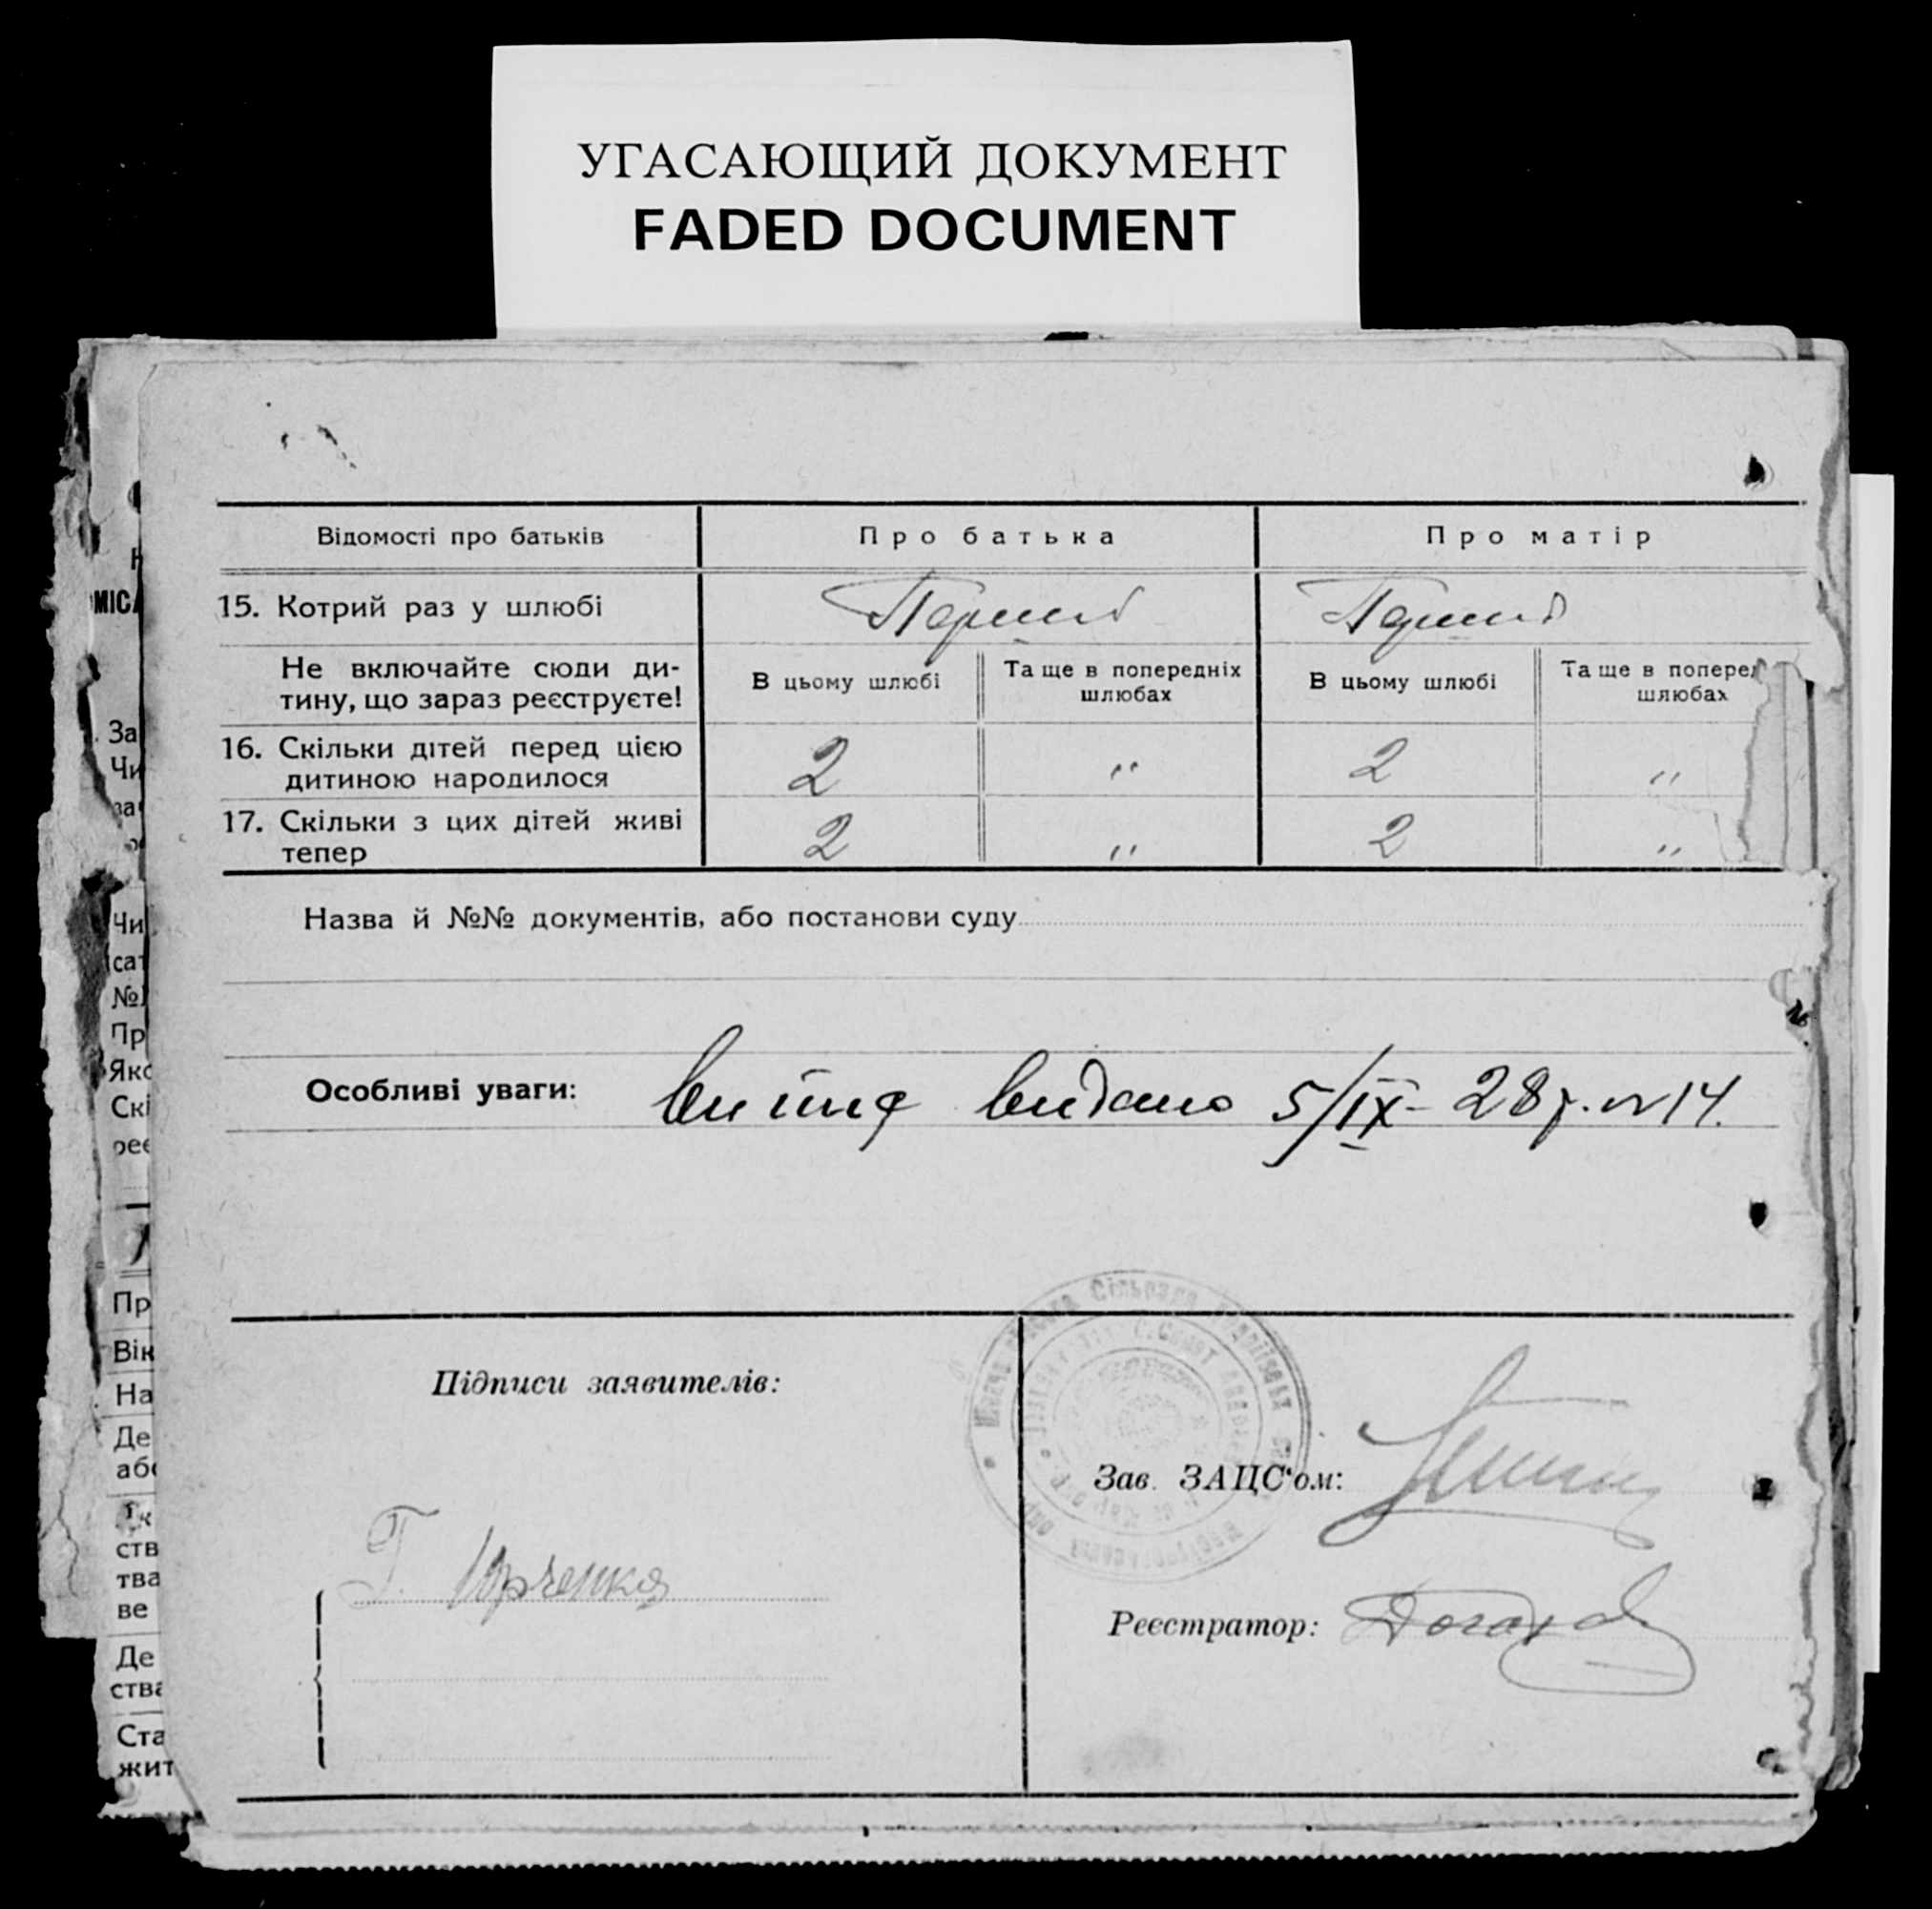 УГАСАЮЩИЙ ДОКУМЕНТ
FADED DOCUMENT
Відомості про батьків
Про батька
Про матір
15. Котрий раз у шлюбі
Перший
Перший
Не включайте сюди ди-
тину, що зараз реєструєте!
В цьому шлюбі
Та ще в попередніх
шлюбах
В цьому шлюбі
Та ще в поперед
шлюбах
16. Скільки дітей перед цією
дитиною народилося
2
"
2
"
17. Скільки з цих дітей живі
тепер
2
"
2
"
Назва й №№ документів, або постанови суду
Особливі уваги:
видано 5/IX - 28 р. № 14.
Підписи заявителів:
Г. Юрченко
Зав. ЗАЦС'ом:
Реєстратор:
МІС
За
Чи
Чи
сат
№
Пр
Які
Скі
реє
Пр
Вік
На
Де
або
ств
тва
ве
Де
ства
Ста
жит